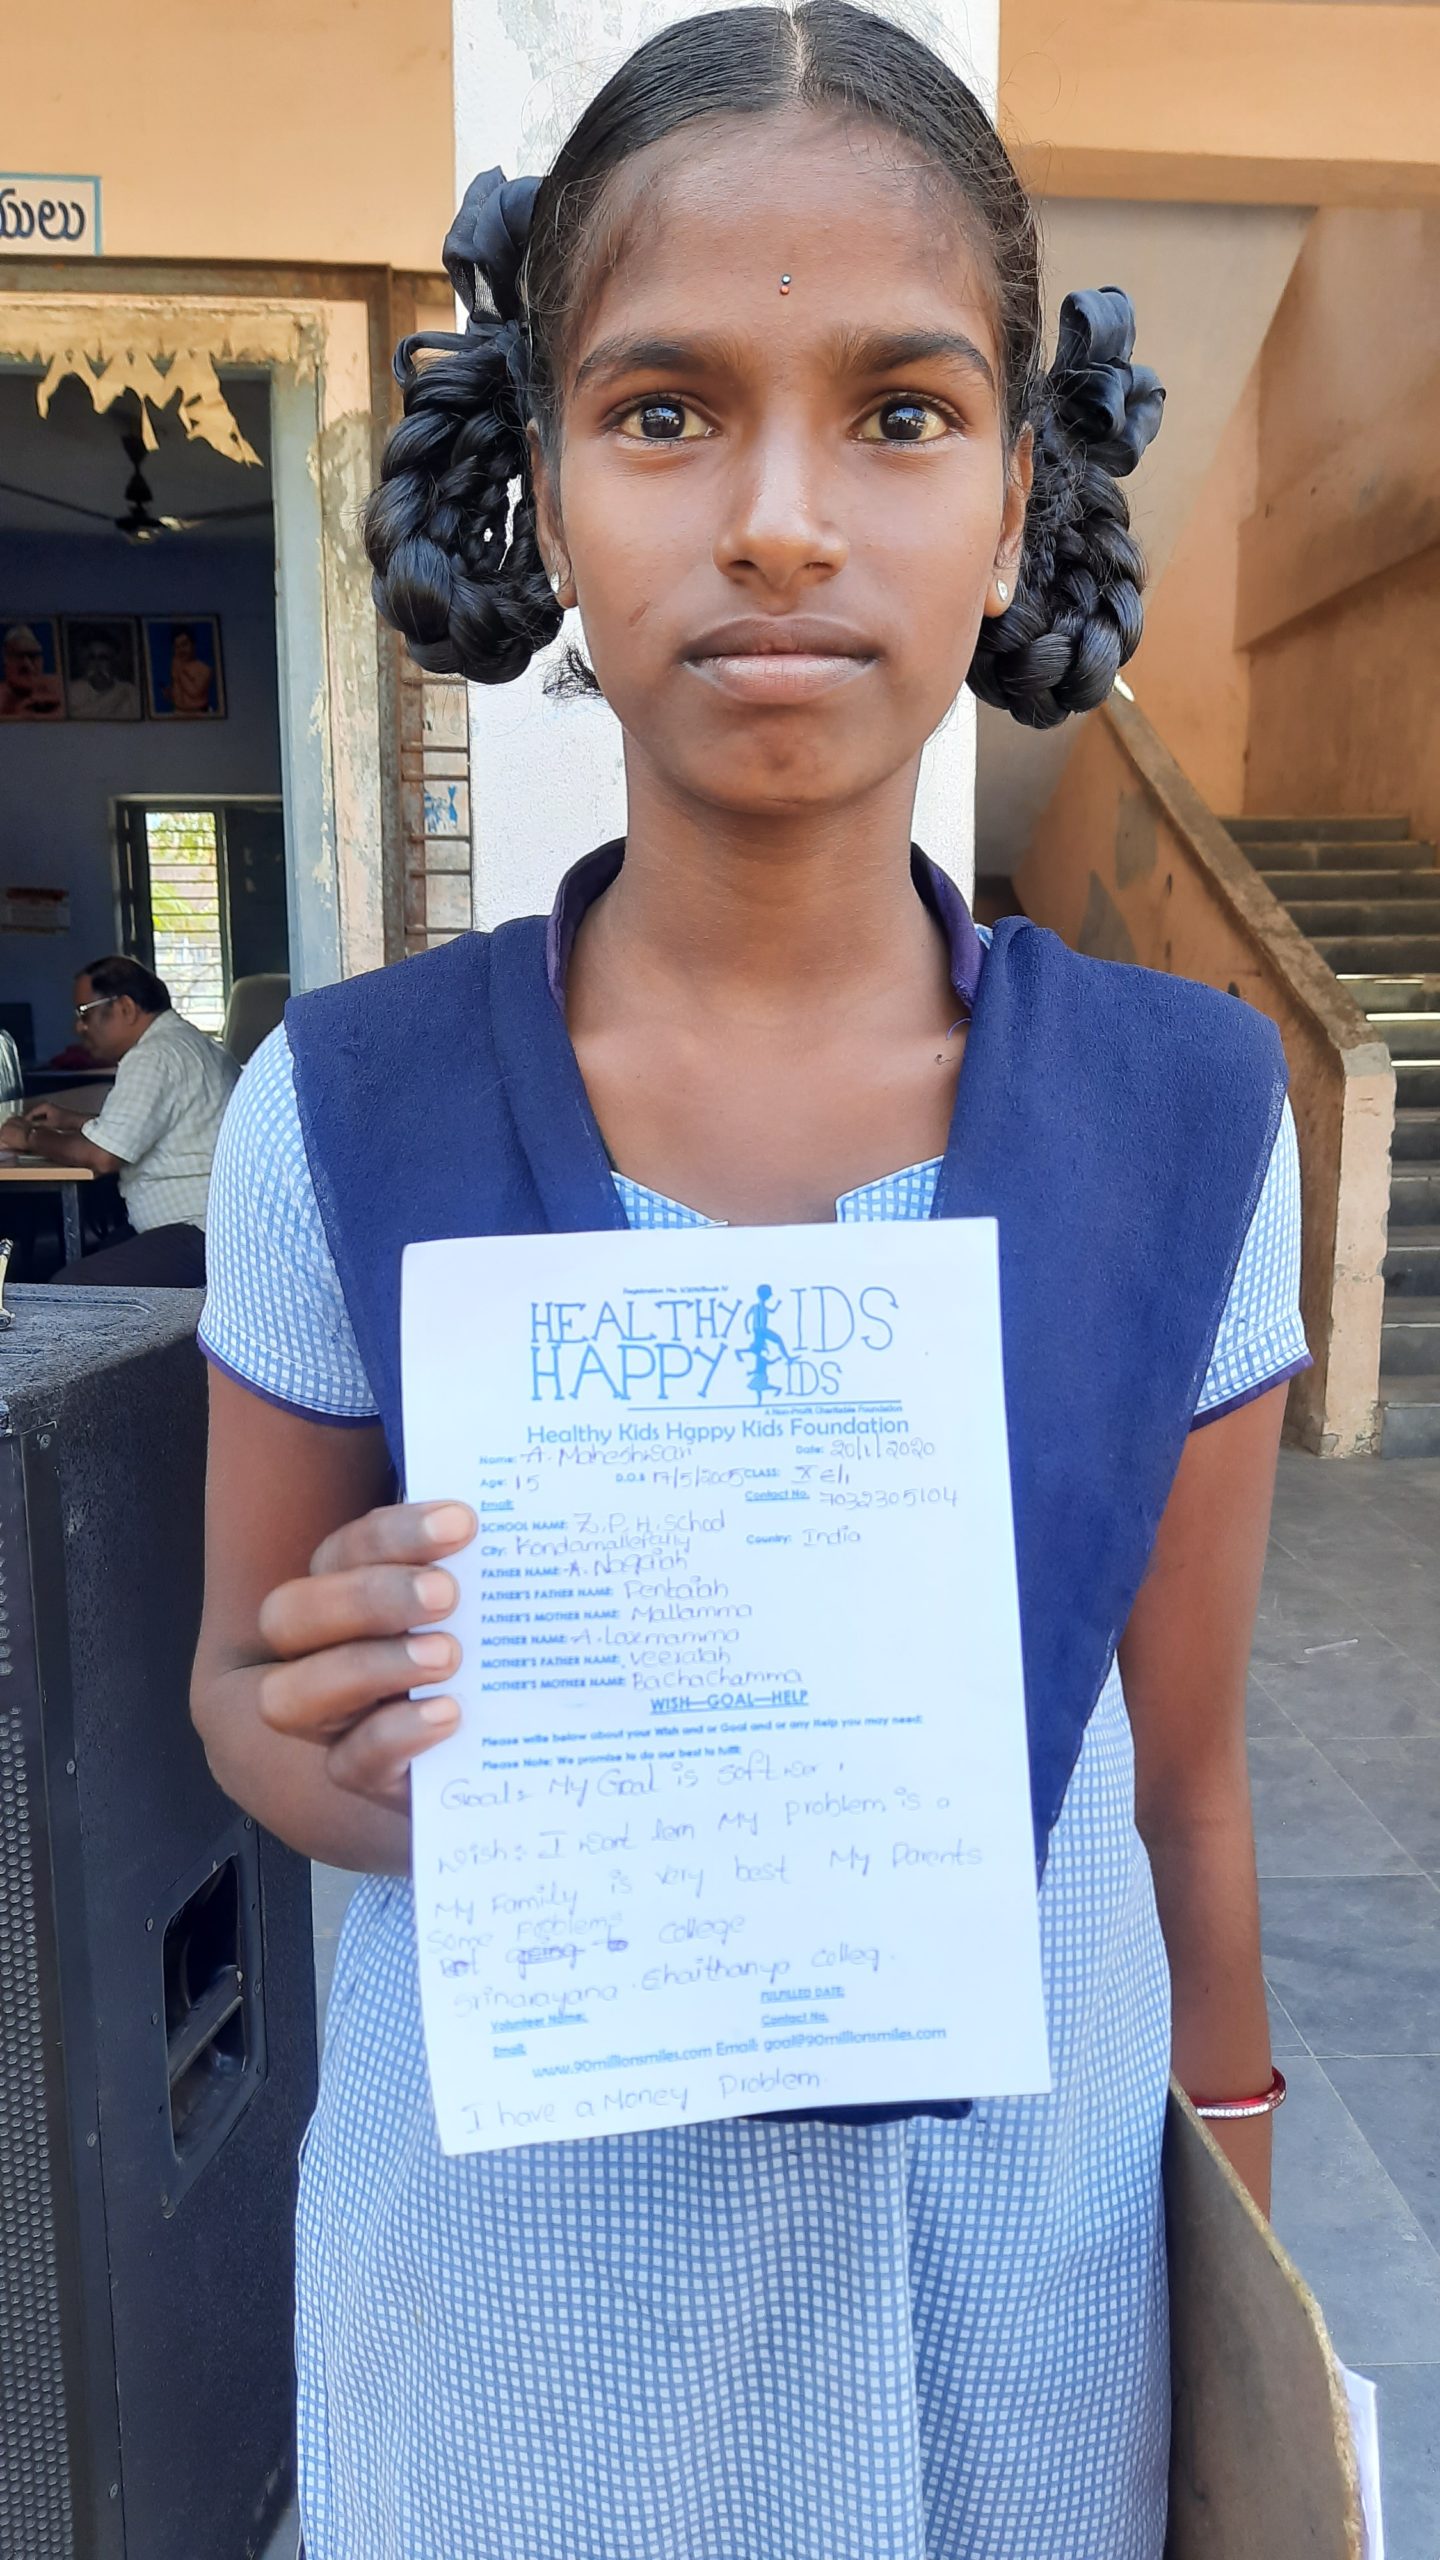 యులు
HEALTHY KIDS
HAPPY KIDS
A Non-Profit Charitable Foundation
Healthy Kids Happy Kids Foundation
Name: A. Maheshwari Date: 20/1/2020
Age: 15 D.O.B 17/5/2005 CLASS: X E/1
Email: Contact No. 7032305104
SCHOOL NAME: Z.P.H. School
City: Kondamallepally Country: India
FATHER NAME: A. Nagaiah
FATHER'S FATHER NAME: Pentaiah
FATHER'S MOTHER NAME: Mallamma
MOTHER NAME: A. Laxmamma
MOTHER'S FATHER NAME: Veeraiah
MOTHER'S MOTHER NAME: BaChachamma
WISH—GOAL—HELP
Please write below about your Wish and or Goal and or any Help you may need:
Please Note: We promise to do our best to fulfil:
Goal: My Goal is Softwer.
Wish: I want lern My problem is a
My Family is very best My Parents
Some Problems
going to College
Srinarayana Chaithanya Colleg.
FULFILLED DATE:
Volunteer Name: Contact No.
Email:
www.90millionsmiles.com Email: goal@90millionsmiles.com
I have a Money Problem.